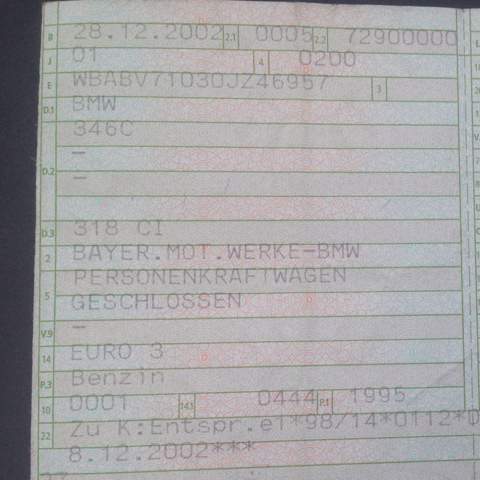 B 28.12.2002 2.1 0005 2.2 72900000
J 01 4 0200
E WBABV71030JZ46957 3
D.1 BMW
346C
D.2 –
–
D.3 318 CI
2 BAYER.MOT.WERKE-BMW
5 PERSONENKRAFTWAGEN
GESCHLOSSEN
V.9 –
14 EURO 3
P.3 Benzin
10 0001 14.1 0444 P.1 1995
22 Zu K:Entspr.e1*98/14*0112*0
8.12.2002***